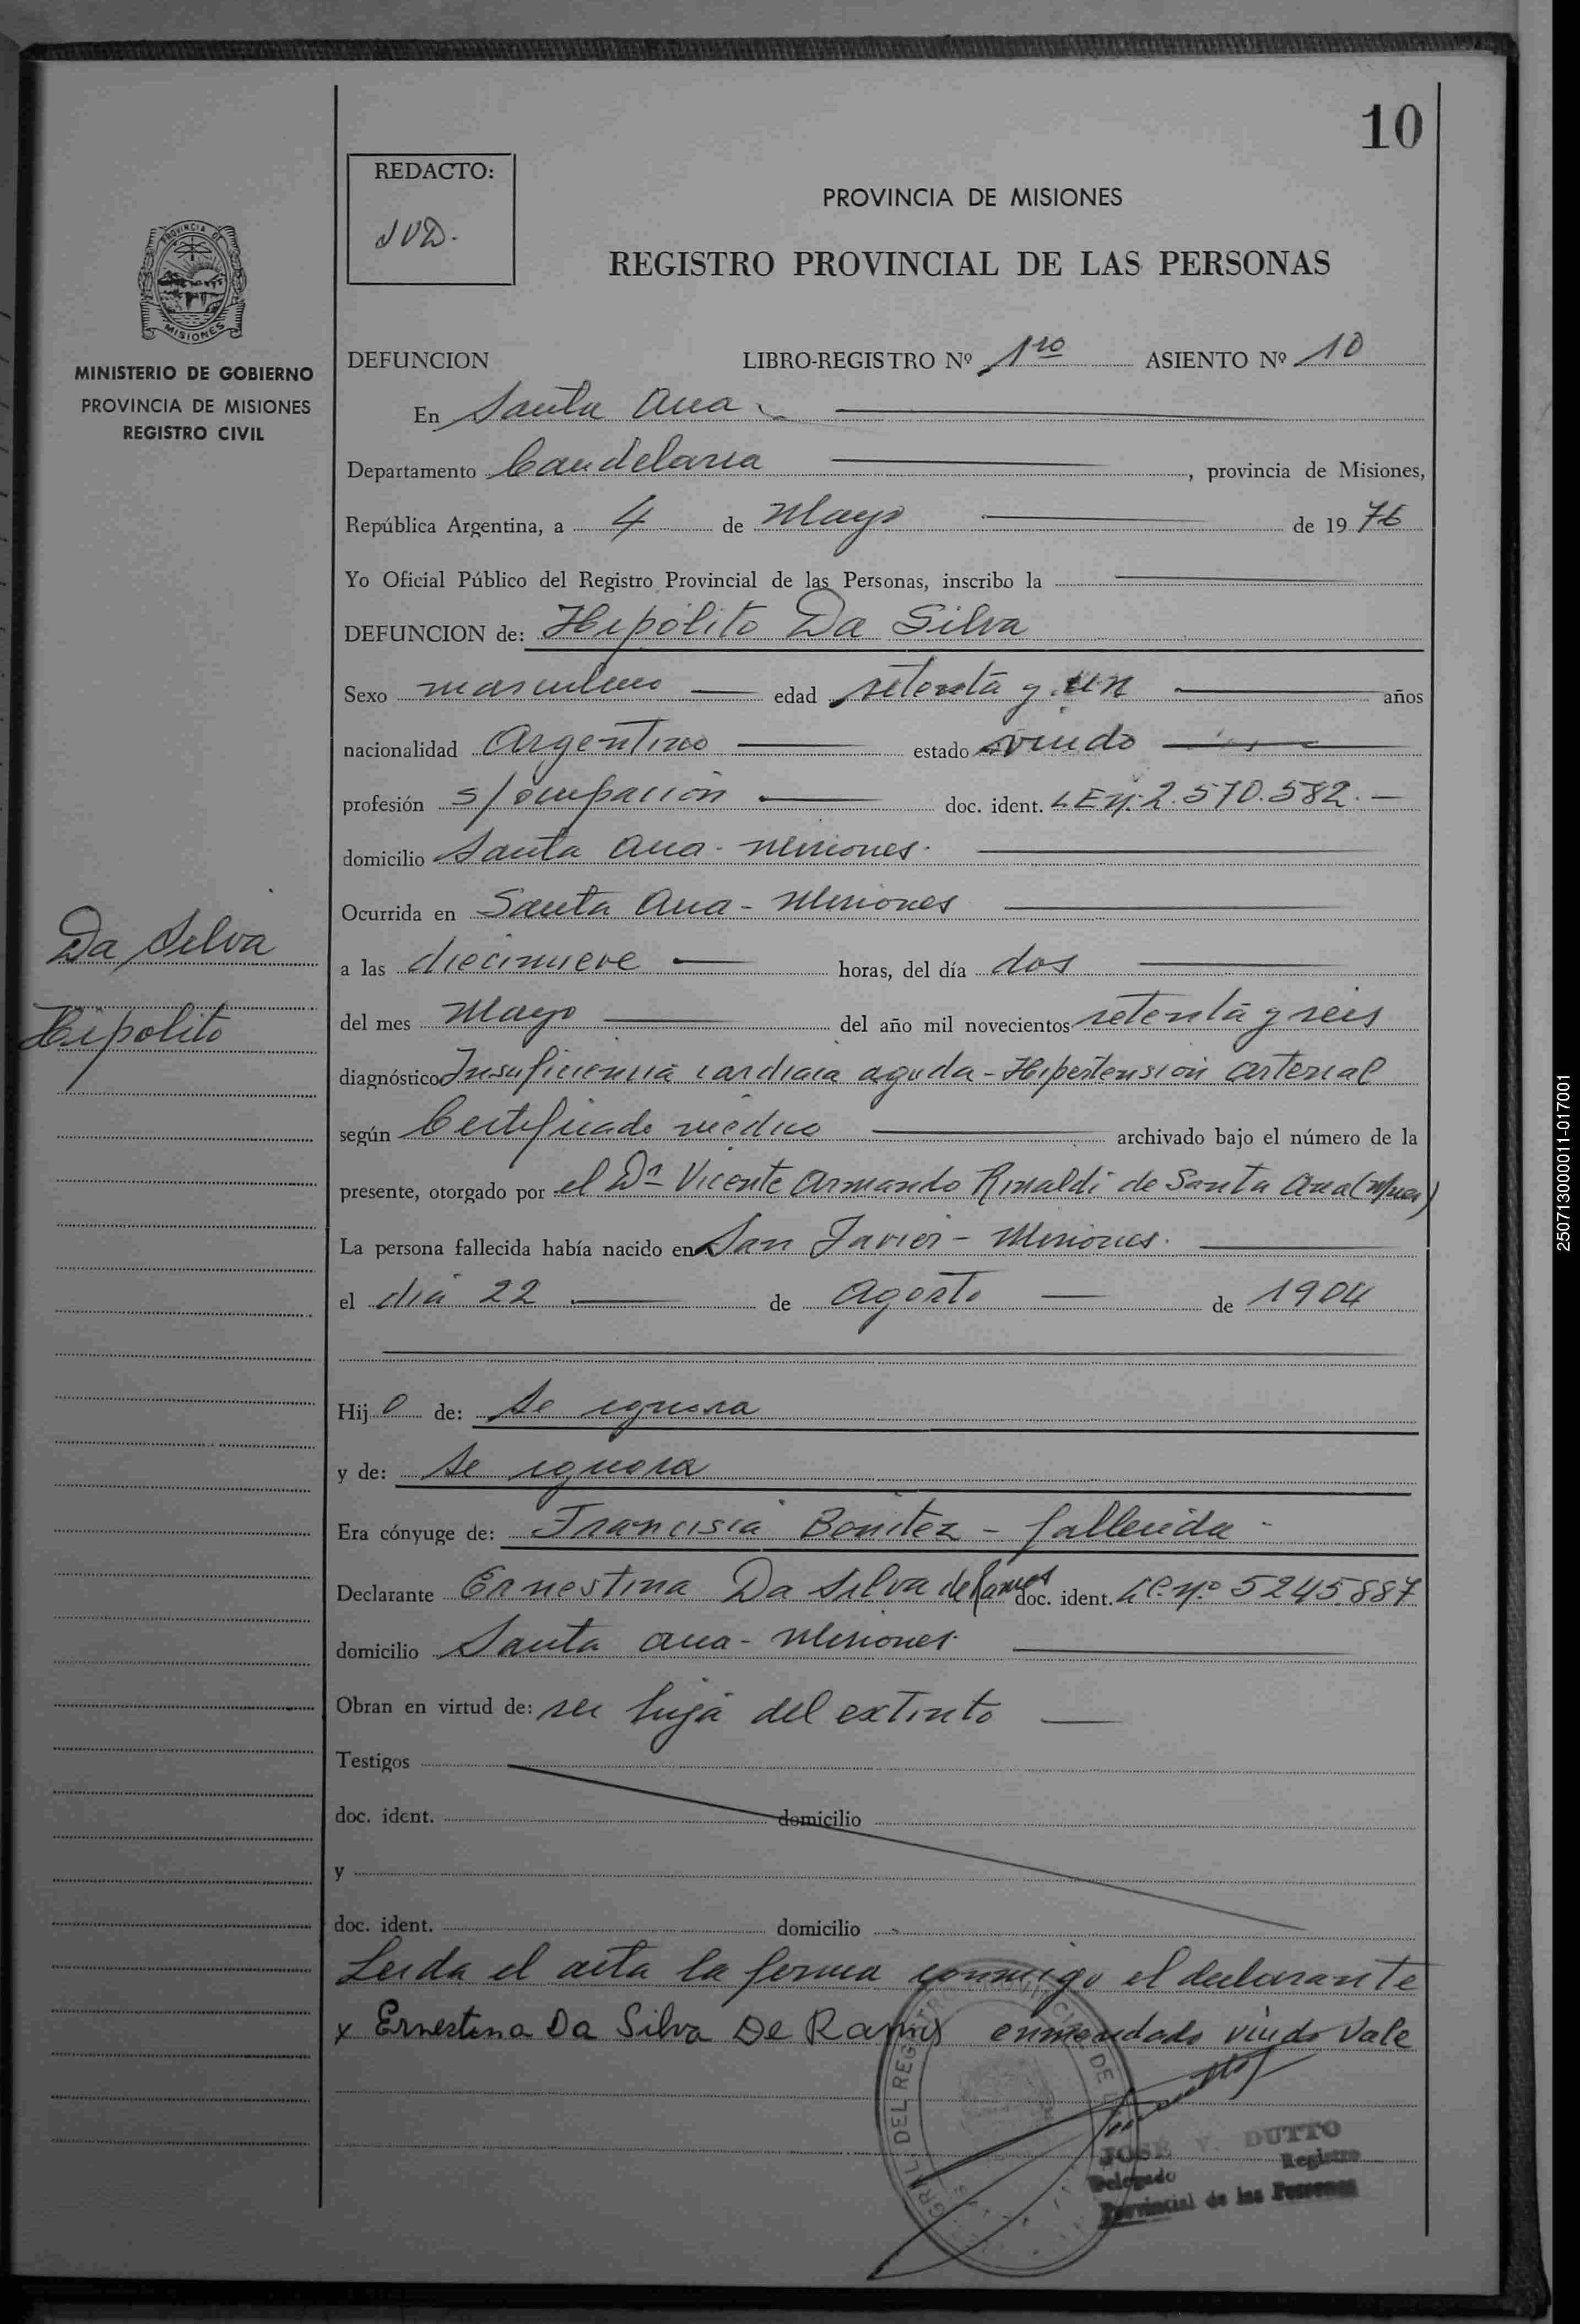 10
REDACTO:
JVD.
PROVINCIA DE MISIONES
REGISTRO PROVINCIAL DE LAS PERSONAS
PROVINCIA DE
MISIONES
MINISTERIO DE GOBIERNO
PROVINCIA DE MISIONES
REGISTRO CIVIL
DEFUNCION LIBRO-REGISTRO Nº 1ro ASIENTO Nº 10
En Santa Ana
Departamento Candelaria, provincia de Misiones,
República Argentina, a 4 de Mayo de 1976
Yo Oficial Público del Registro Provincial de las Personas, inscribo la
DEFUNCION de: Hipólito Da Silva
Sexo masculino edad setenta y un años
nacionalidad Argentino estado viudo
profesión s/ocupación doc. ident. LENº 2.570.582.-
domicilio Santa Ana - Misiones.
Ocurrida en Santa Ana - Misiones
Da Silva
Hipolito
a las diecinueve horas, del día dos
del mes Mayo del año mil novecientos setenta y seis
diagnóstico Insuficiencia cardiaca aguda - Hipertensión arterial
según Certificado médico archivado bajo el número de la
presente, otorgado por el Dr Vicente Armando Rinaldi de Santa Ana (Mnes)
La persona fallecida había nacido en San Javier - Misiones.
el día 22 de Agosto de 1904
Hijo de: Se ignora
y de: Se ignora
Era cónyuge de: Francisca Benitez - fallecida -
Declarante Ernestina Da Silva de Ramos doc. ident. LC. Nº 5245.887
domicilio Santa Ana - Misiones.
Obran en virtud de: ser hija del extinto
Testigos
doc. ident. domicilio
y
doc. ident. domicilio
Leida el acta la firma conmigo el declarante
x Ernestina Da Silva De Ramos enmendado viudo Vale
JOSÉ V. DUTTO
Delegado Registro
Provincial de las Personas
250713000011-017001